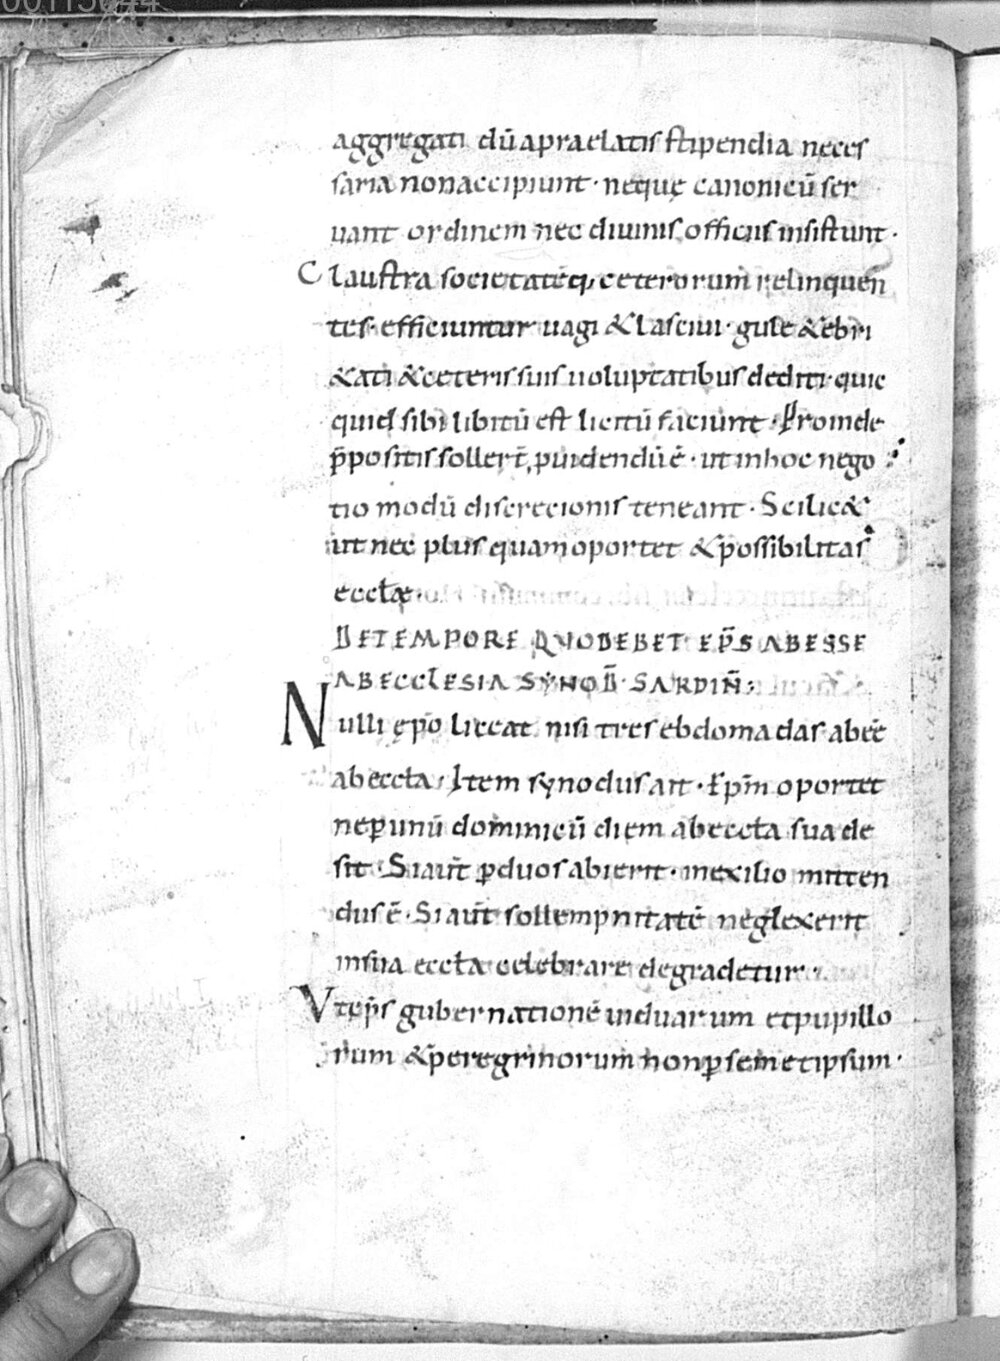 aggregati dū a praelatis stipendia neces
saria non accipiunt · neque canonicū ser
uant ordinem nec diuinis officiis insistunt ·
Claustra societatēq; ceterorum relinquen
tes · efficiuntur uagi & lasciui · gule & ebri
& ati & ceteris suis uoluptatibus dediti · quic
quid sibi libitū est licitū faciunt · Proinde
p̄positis sollert̄ puidendū ē · ut in hoc nego
tio modū discrecionis teneant · Scilic&
ut nec plus quam oportet & possibilitas
eccłæ ·
DE TEMPORE QUO DEBET EP̄S ABESSE
AB ECCLESIA SYNOD̄ · SARDIN̄ ;
Nulli ep̄o liceat nisi tres ebdomadas abeē
ab eccła · Item synodus ait · Ep̄m oportet
ne p̱ unū dominicū diem ab eccła sua de
sit · Si aūt p̱ duos abierit · in exilio mitten
dus ē · Si aūt sollempnitatē neglexerit
in sua eccła celebrare degradetur ·
Vt ep̄s gubernationē uiduarum et pupillo
rum & peregrinorum non p̱ semetipsum ·